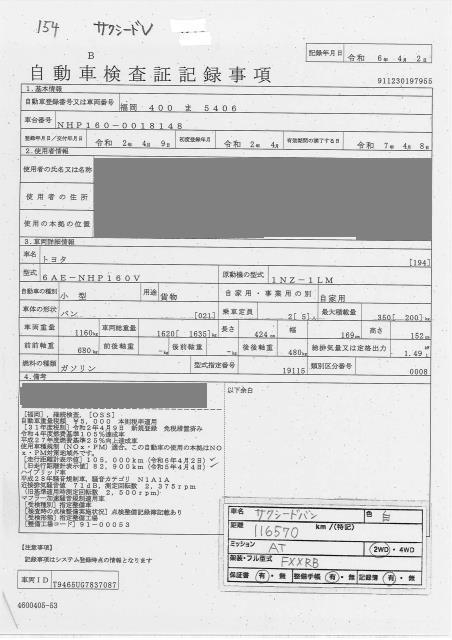 154 サクシードV
B
記録年月日 令和 6年 4月 2日
自動車検査証記録事項
911230197955
1.基本情報
自動車登録番号又は車両番号 福岡 400 ま 5406
車台番号 NHP160-0018148
登録年月日/交付年月日 令和 2年 4月 9日 初度登録年月 令和 2年 4月 有効期間の満了する日 令和 7年 4月 8日
2.使用者情報
使用者の氏名又は名称
使用者の住所
使用の本拠の位置
3.車両詳細情報
車名 トヨタ [194]
型式 6AE-NHP160V 原動機の型式 1NZ-1LM
自動車の種別 小型 用途 貨物 自家用・事業用の別 自家用
車体の形状 バン [021] 乗車定員 2[ 5]人 最大積載量 350[ 200]kg
車両重量 1160kg 車両総重量 1620[ 1635]kg 長さ 424cm 幅 169cm 高さ 152cm
前前軸重 680kg 前後軸重 -kg 後前軸重 -kg 後後軸重 480kg 総排気量又は定格出力 1.49L
燃料の種類 ガソリン 型式指定番号 19115 類別区分番号 0008
4.備考
以下余白
[福岡],継続検査,[OSS]
自動車重量税額 ¥5,000 本則税率適用
[31年度税制]令和2年4月9日 新規登録 免税措置済
令和4年度燃費基準105%達成車
平成27年度燃費基準25%向上達成車
使用車種規制(NOx・PM)適合,この自動車の使用の本拠はNO
x・PM対策地域外です。
[走行距離計表示値]105,000km(令和6年4月2日)
[旧走行距離計表示値]82,900km(令和5年4月4日)
ハイブリッド車
平成28年騒音規制車,騒音カテゴリ N1A1A
近接排気騒音値 71dB,測定回転数 2,375rpm
(旧基準適用時測定回転数 2,500rpm)
マフラー加速騒音規制適用車
[受検種別]指定整備車
[検査時の点検整備実施状況]点検整備記録簿記載あり
[受検形態]指定整備工場
[整備工場コード]91-00053
車名 サクシードバン 色 白
距離 116570 km/(特記)
ミッション AT 2WD・4WD
架装・フル型式 FXXRB
保証書 有・無 整備手帳 有・無 記録簿 有・無
[注意事項]
記録事項はシステム登録時点の情報となります
車両ID T9465UG7837087
4600405-53